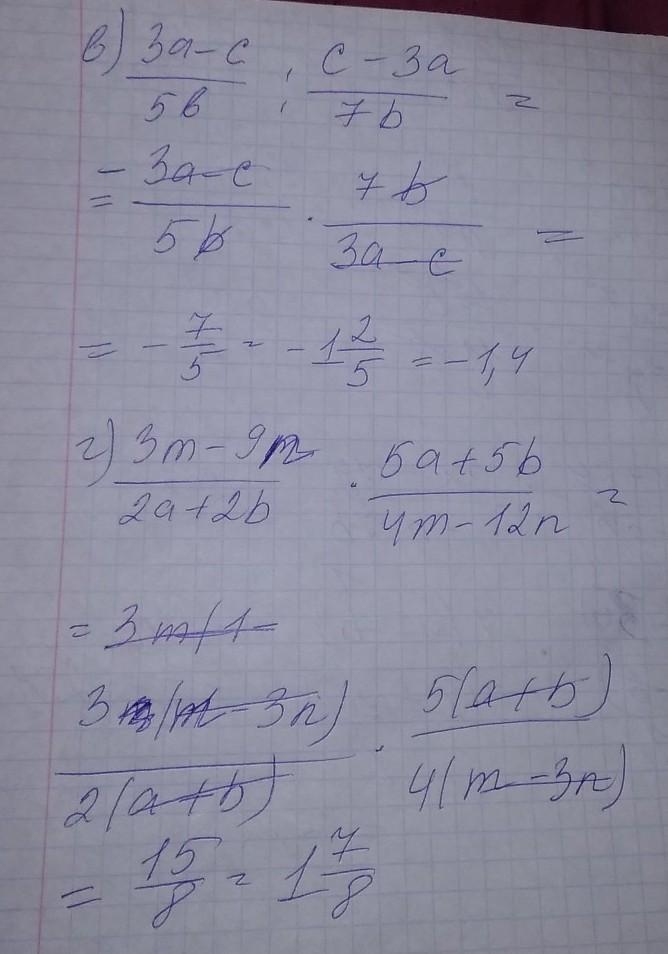 в) (3a-c)/(5b) : (c-3a)/(7b) =
= - (3a-c)/(5b) · (7b)/(3a-c) =
= - 7/5 = - 1 2/5 = -1,4
г) (3m-9n)/(2a+2b) · (5a+5b)/(4m-12n) =
= 3m(1-
3(m-3n)/2(a+b) · 5(a+b)/4(m-3n)
= 15/8 = 1 7/8